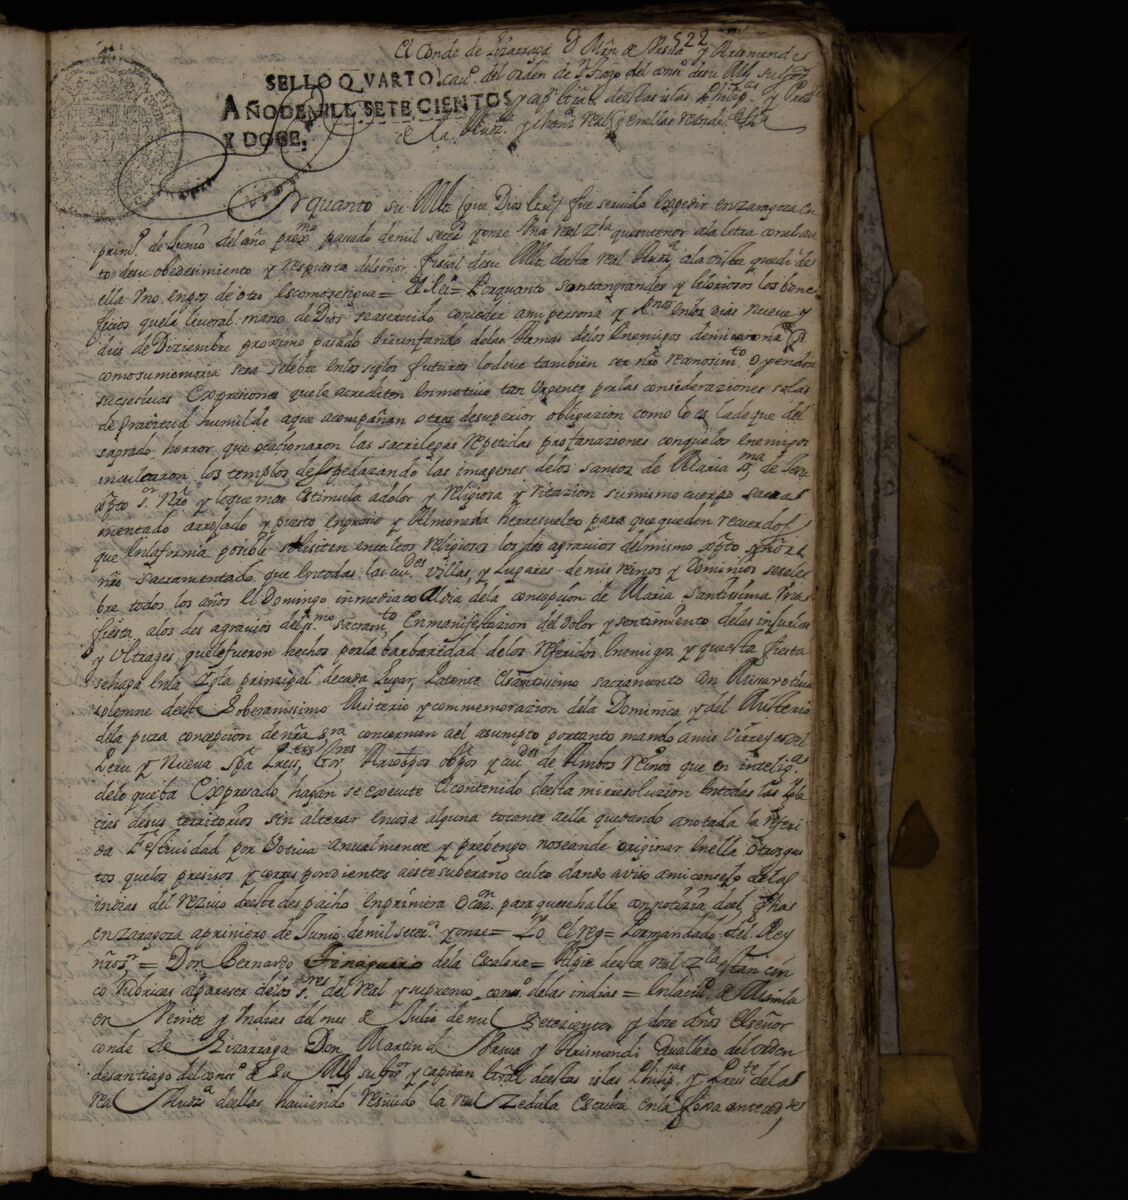 522
El Conde de Lizarraga D Mrn de Vrsua y Arismendi
SELLO QVARTO,
cauo. del orden de
su Mg su Gor
AÑO DE MILL SETECIENTOS
y capn. Gral. destas islas Phelipas. y Presi
Y DOCE.
Rl. Audiza.
Porquanto su Mg (que Dios Gue) fue seruido expedir en zaragoza en
prinp. de Junio del año proxmo pasado de mil setecs y onze Vna real Zla que su tenor a la letra con el au
to de su obedesimiento y respuesta del señor fiscal de su Mg desta real Auda
ella vno en pos de otro es como se sigue = El Rei = Porquanto son tan grandes y gloriosos los bene
ficios que la liueral mano de Dios se a seruido conceder a mi persona y Reynos en los dias nueue y
dies de Diziembre proximo pasado triunfando de las Armas de los Enemigos de mi corona
como su memoria sera selebre en los siglos futuros lo deue tambien ser nro reconosimto oyendose
sucsesiuas Expresiones que le acrediten en motiuo tan Vrgente por las consideraziones solas
de Gratitud humilde a que acompañan otras de superior obligazion como lo es la de que del
sagrado horror que ocasionaron las sacrilegas repetidas profanaziones con que los Enemigos
incultaron los templos despedazando las imagenes de los santos de Maria sma, de Jesu
xpto sr Nro y lo que mas Estimula a dolor y religiosa yritazion su mismo cuerpo sacra
mentado arrojado y puesto en precio y Almoneda he resuelto para que queden recuerdos
que en la forma posible soliciten en cultos religiosos los des agrauios del mismo xpto
nro sacramentado que en todas las ciudes Villas, y Lugares de mis reinos y Dominios se sele
bre todos los años El Domingo inmediato Al dia de la concepcion de Maria Santissima Vna
fiesta a los des agrauios del smo sacramto En manifestazion del dolor y sentimiento de las injurias
y Vltrages que le fueron hechos por la barbaridad de los referidos Enemigos y que esta fiesta
se haga en la Zgla prinsipal de cada Lugar, Patente El santissimo sacramento con Missa
solemne deste Soberanissimo Misterio y commemorazion de la Dominica y del Misterio
de la pura concepcion de nra sra con sermon a el asumpto portanto mando a mis Virreyes del
Peru y Nueua Spa Presites, Gores Arzobpos obpos y ciudes de Ambos reinos que en intelig.a
de lo que ba Expresado hagan se execute El contenido desta mi resoluzion en todas las
cias de sus territorios sin alterar en cosa alguna tocante a ella quedando anotada la referi
da Festiuidad por Votiua anualmente y prebengo no se an de originar en ella otros gas
tos que los presisos y corres pondientes a este soberano culto dando auiso a mi consejo de las
indias del reziuo deste despacho en primera ocazn. para que se halle con notizia del fha
en zaragoza a priniero de Junio de mil setecs. y onze = Yo el rey = Por mandado del Rey
nro sr = Don Bernardo Tinaguero de la Escalera = Al pie desta real Zla estan cin
co rubricas al pareser de los sres del real y supremo conso. de las indias = En la ciud. de Manila
en Veinte y Vndias del mes de Julio de mil Setezientos y dose años El señor
conde de Lizarraga Don Martin de Vrsua y Arismendi Cauallero del orden
de santiago del conso. de su Mg su Gor y capitan Gral destas islas Phlipas. y Presite de la
real Auda. dellas hauiendo resiuido la real Zedula Escrita en la foxa anteced.es